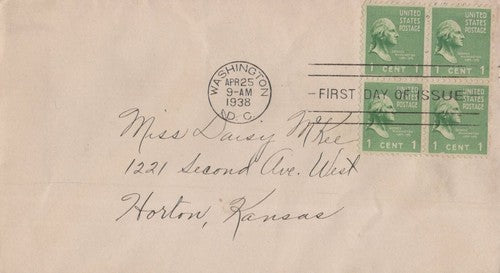 UNITED STATES POSTAGE
1 CENT 1
UNITED STATES POSTAGE
1 CENT 1
UNITED STATES POSTAGE
1 CENT 1
UNITED STATES POSTAGE
1 CENT 1
WASHINGTON
APR 25
9-AM
1938
D. C.
FIRST DAY OF ISSUE
Miss Daisy McKee
1221 Second Ave. West
Horton, Kansas